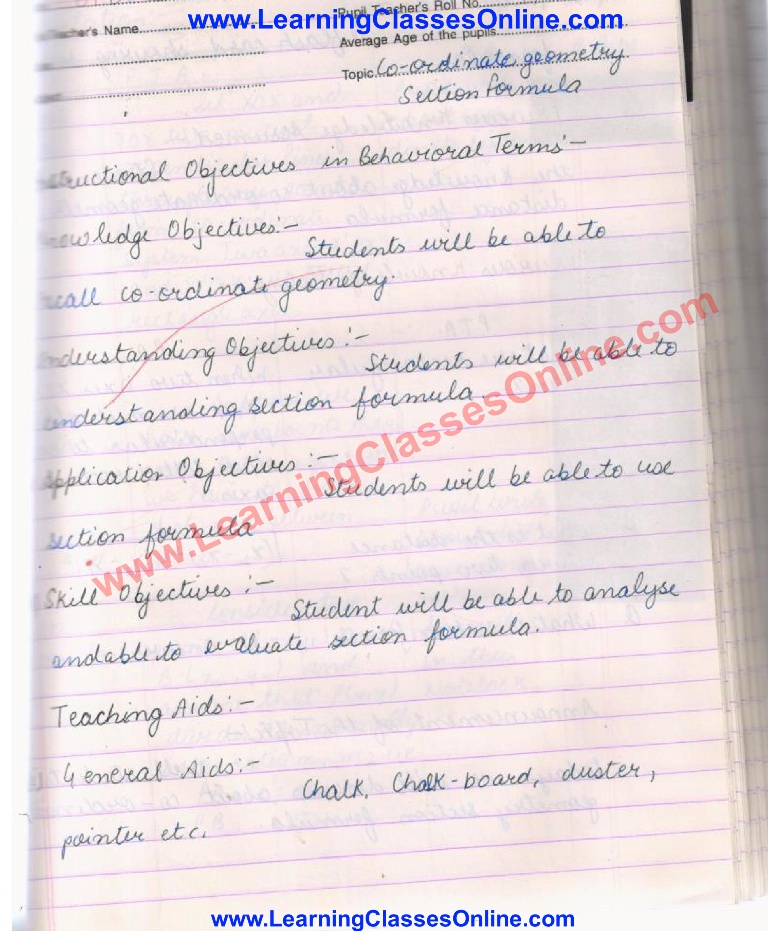 www.LearningClassesOnline.com
Pupil Teacher's Roll No.
Teacher's Name
Average Age of the pupils
Topic Co-ordinate geometry
Section formula
Instructional Objectives in Behavioral Terms:-
Knowledge Objectives:-
Students will be able to
recall co-ordinate geometry.
Understanding Objectives:-
Students will be able to
understanding section formula.
Application Objectives:-
Students will be able to use
section formula
Skill Objectives:-
Student will be able to analyse
and able to evaluate section formula.
Teaching Aids:-
General Aids:-
Chalk, Chalk-board, duster,
pointer etc.
www.LearningClassesOnline.com
www.LearningClassesOnline.com